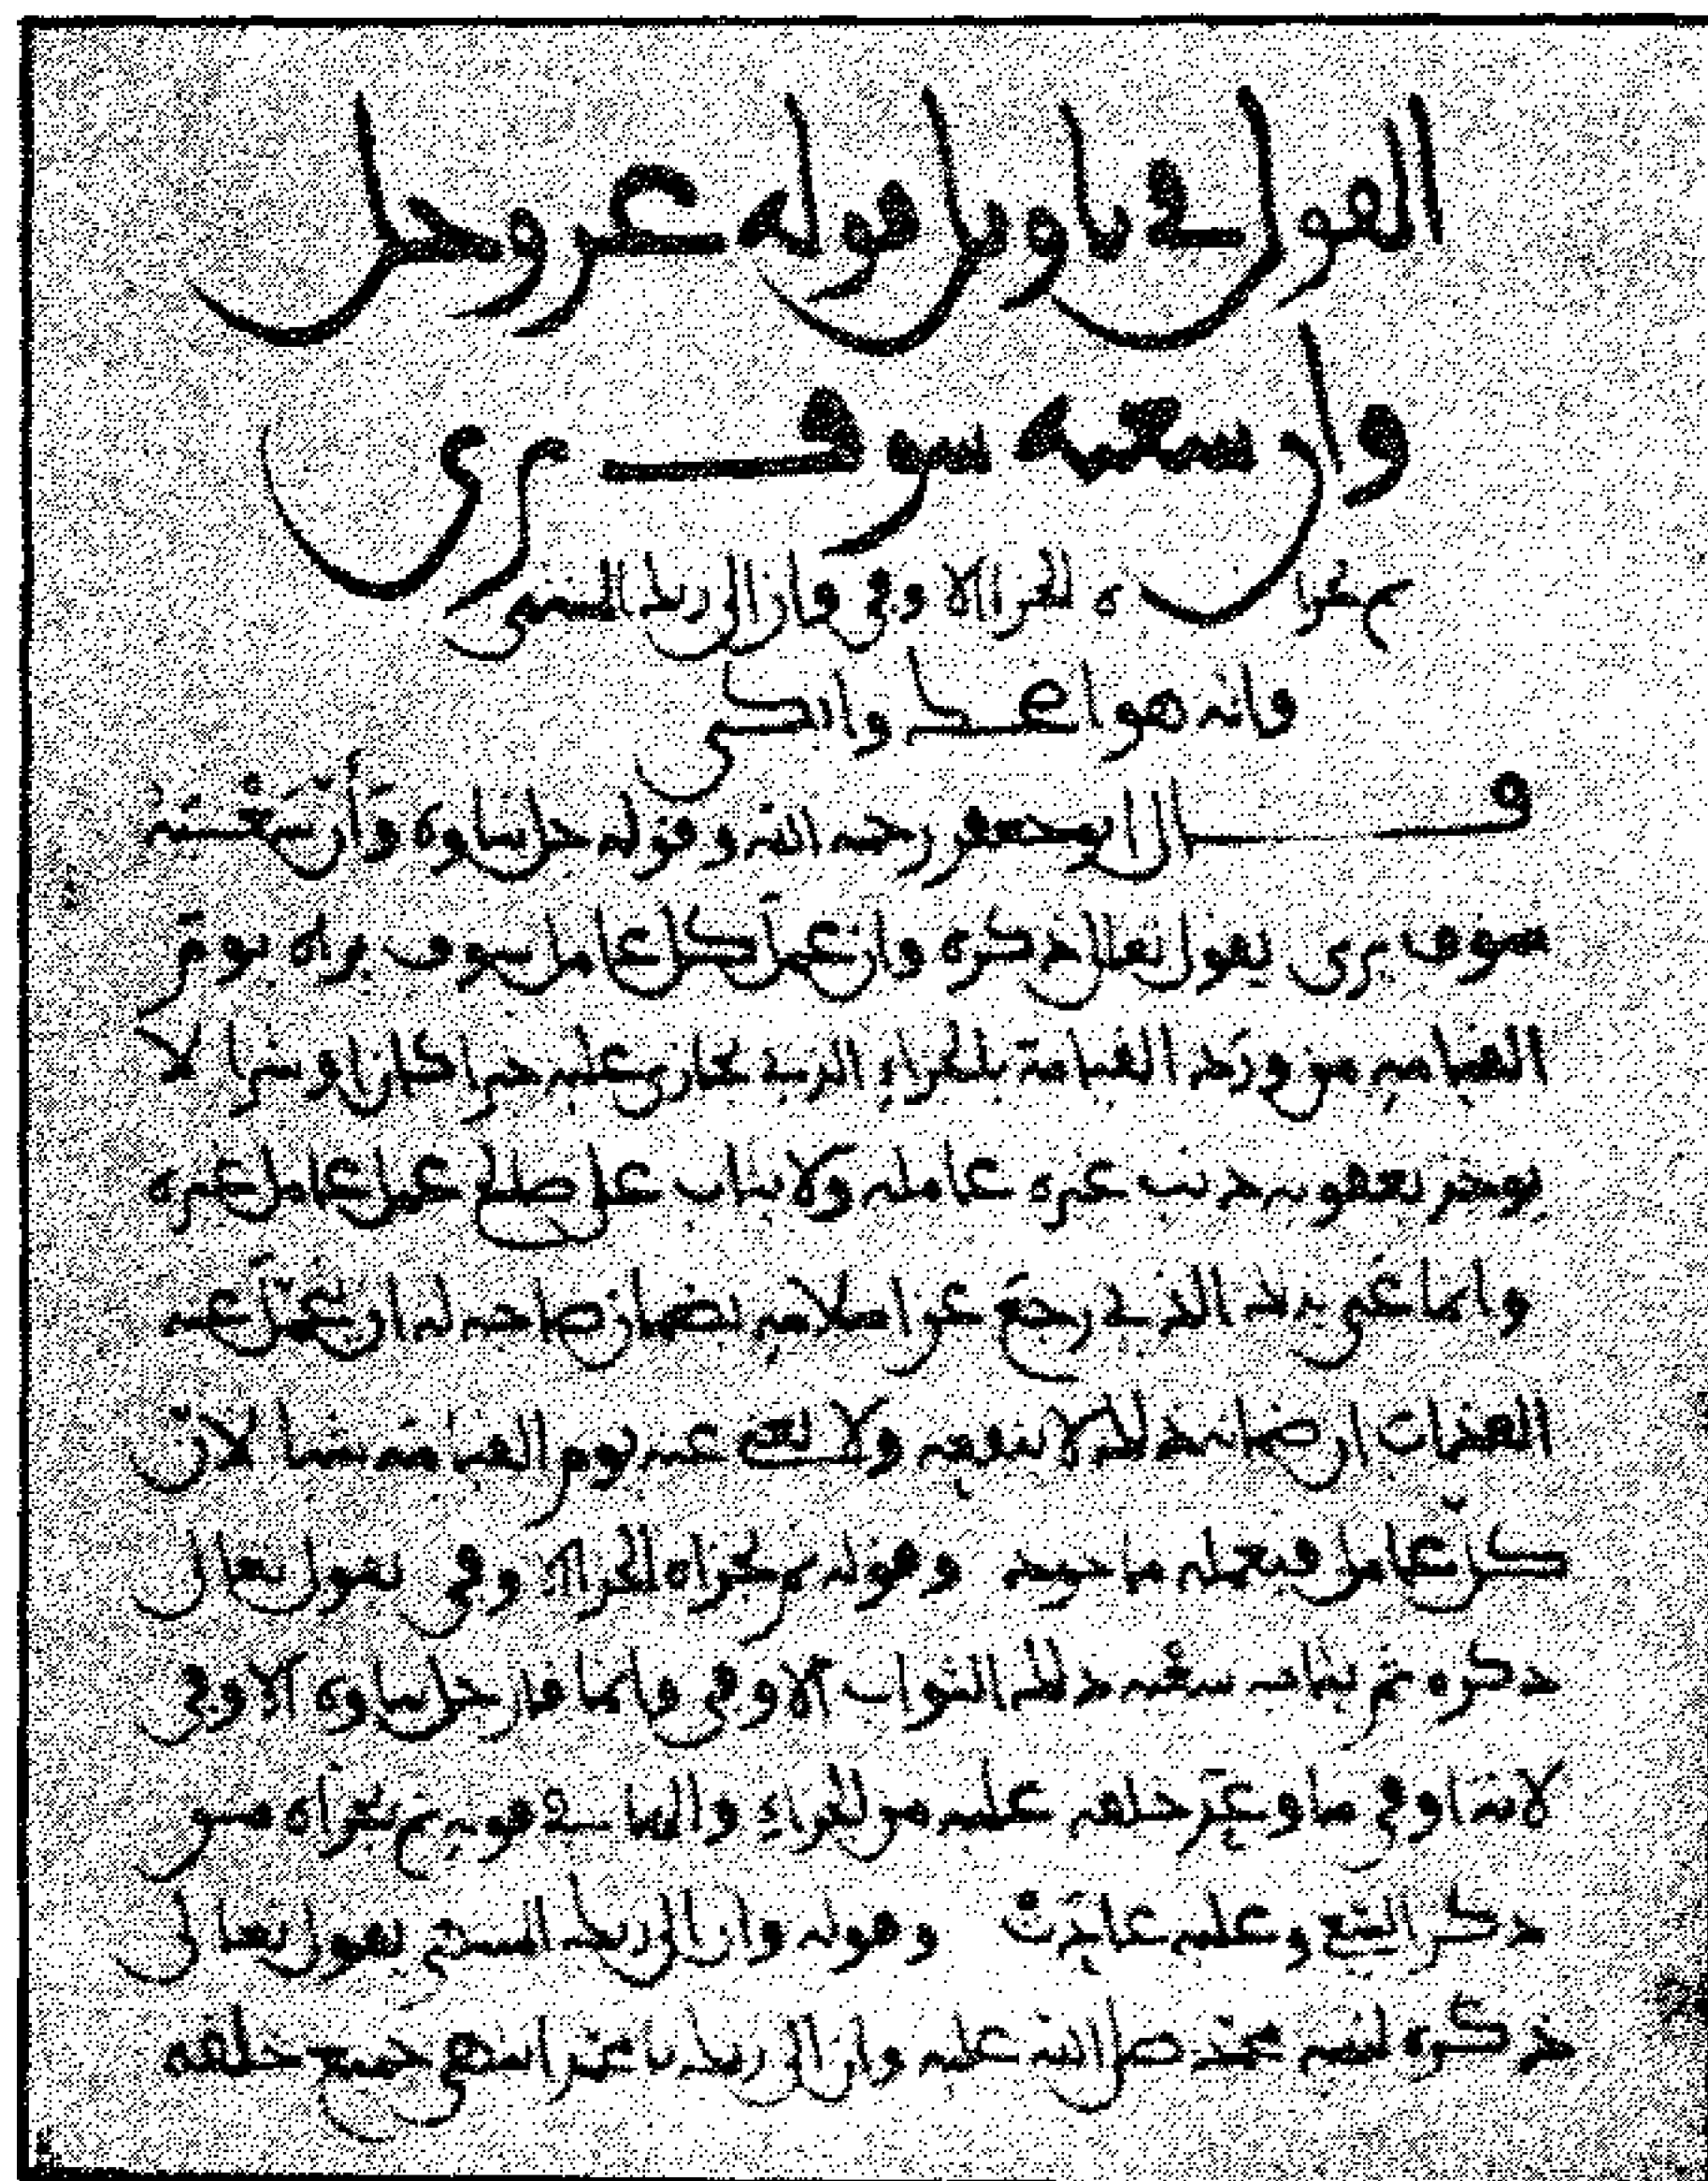 القول في تأويل قوله عز وجل
وأن سعيه سوف يرى
ثم يجزاه الجزاء الأوفى وأن إلى ربك المنتهى
وأنه هو أضحك وأبكى
قال أبو جعفر رحمه الله وقوله جل ثناؤه وَأَنَّ سَعْيَهُ
سوف يرى يقول تعالى ذكره وأن عمل كل عامل سوف يراه يوم
القيامة من ورد القيامة بالجزاء الذي يجازى عليه خيرا كان أو شرا لا
يؤخذ بعقوبة ذنب غير عامله ولا يثاب على صالح عمل عامل غيره
وإنما عني بذلك الذي رجع عن إسلامه بضمان صاحبه له أن يتحمل عنه
العذاب أن ضمانه ذلك لا ينفعه ولا يغني عنه يوم القيامة شيئا لأن
كل عامل فبعمله مأخوذ وقوله ثم يجزاه الجزاء الأوفى يقول تعالى
ذكره ثم يثاب بسعيه ذلك الثواب الأوفى وإنما قال جل ثناؤه الأوفى
لأنه أوفى ما وعد خلقه عليه من الجزاء والهاء في قوله ثم يجزاه من
ذكر السعي وعليه عادت وقوله وأن إلى ربك المنتهى يقول تعالى
ذكره لنبيه محمد صلى الله عليه وأن إلى ربك يا محمد انتهى جميع خلقه